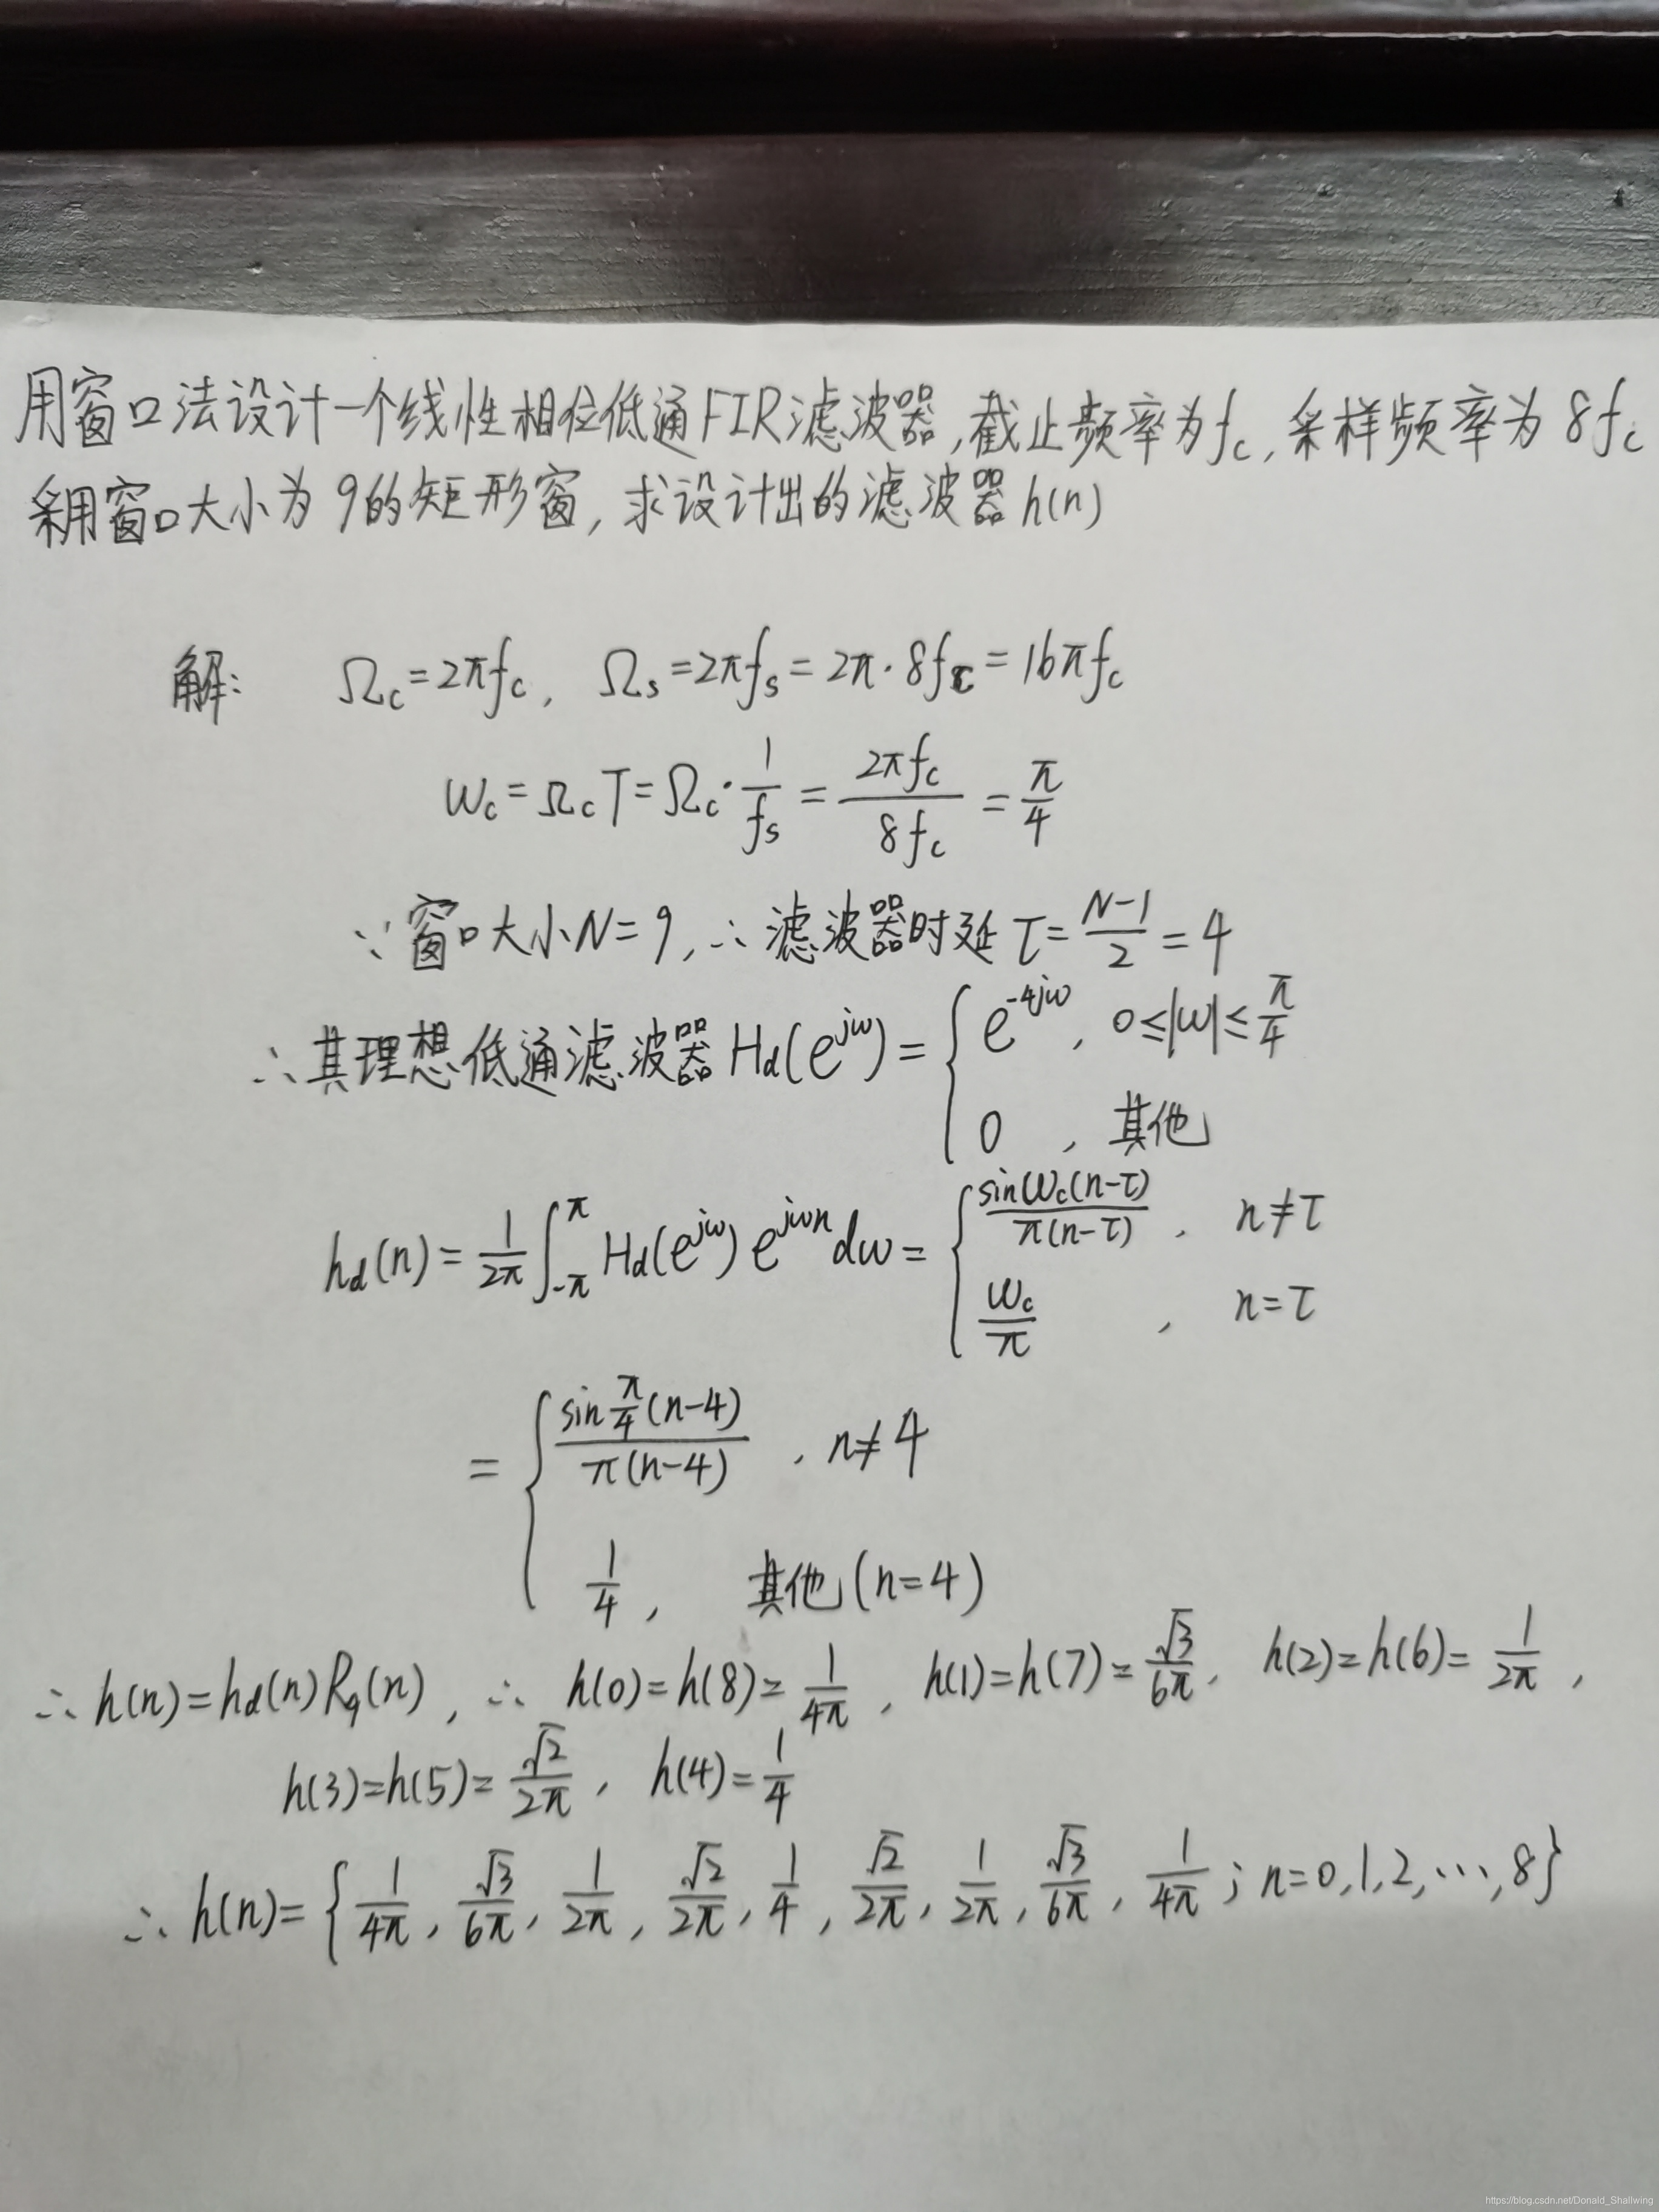 用窗口法设计一个线性相位低通FIR滤波器,截止频率为fc,采样频率为8fc
采用窗口大小为9的矩形窗,求设计出的滤波器h(n)
解: Ωc=2πfc, Ωs=2πfs=2π·8fc=16πfc
ωc=ΩcT=Ωc·1/fs=2πfc/8fc=π/4
∵窗口大小N=9,∴滤波器时延τ=(N-1)/2=4
∴其理想低通滤波器Hd(e^jω)={e^-4jω, 0≤|ω|≤π/4
0, 其他
hd(n)=1/2π ∫_-π^π Hd(e^jω)e^jωn dω={sinωc(n-τ)/π(n-τ), n≠τ
ωc/π, n=τ
={sin π/4 (n-4)/π(n-4), n≠4
1/4, 其他(n=4)
∴h(n)=hd(n)R9(n), ∴ h(0)=h(8)=1/4π, h(1)=h(7)=√3/6π, h(2)=h(6)=1/2π,
h(3)=h(5)=√2/2π, h(4)=1/4
∴h(n)={1/4π, √3/6π, 1/2π, √2/2π, 1/4, √2/2π, 1/2π, √3/6π, 1/4π; n=0,1,2,…,8}
https://blog.csdn.net/Donald_Shallwing